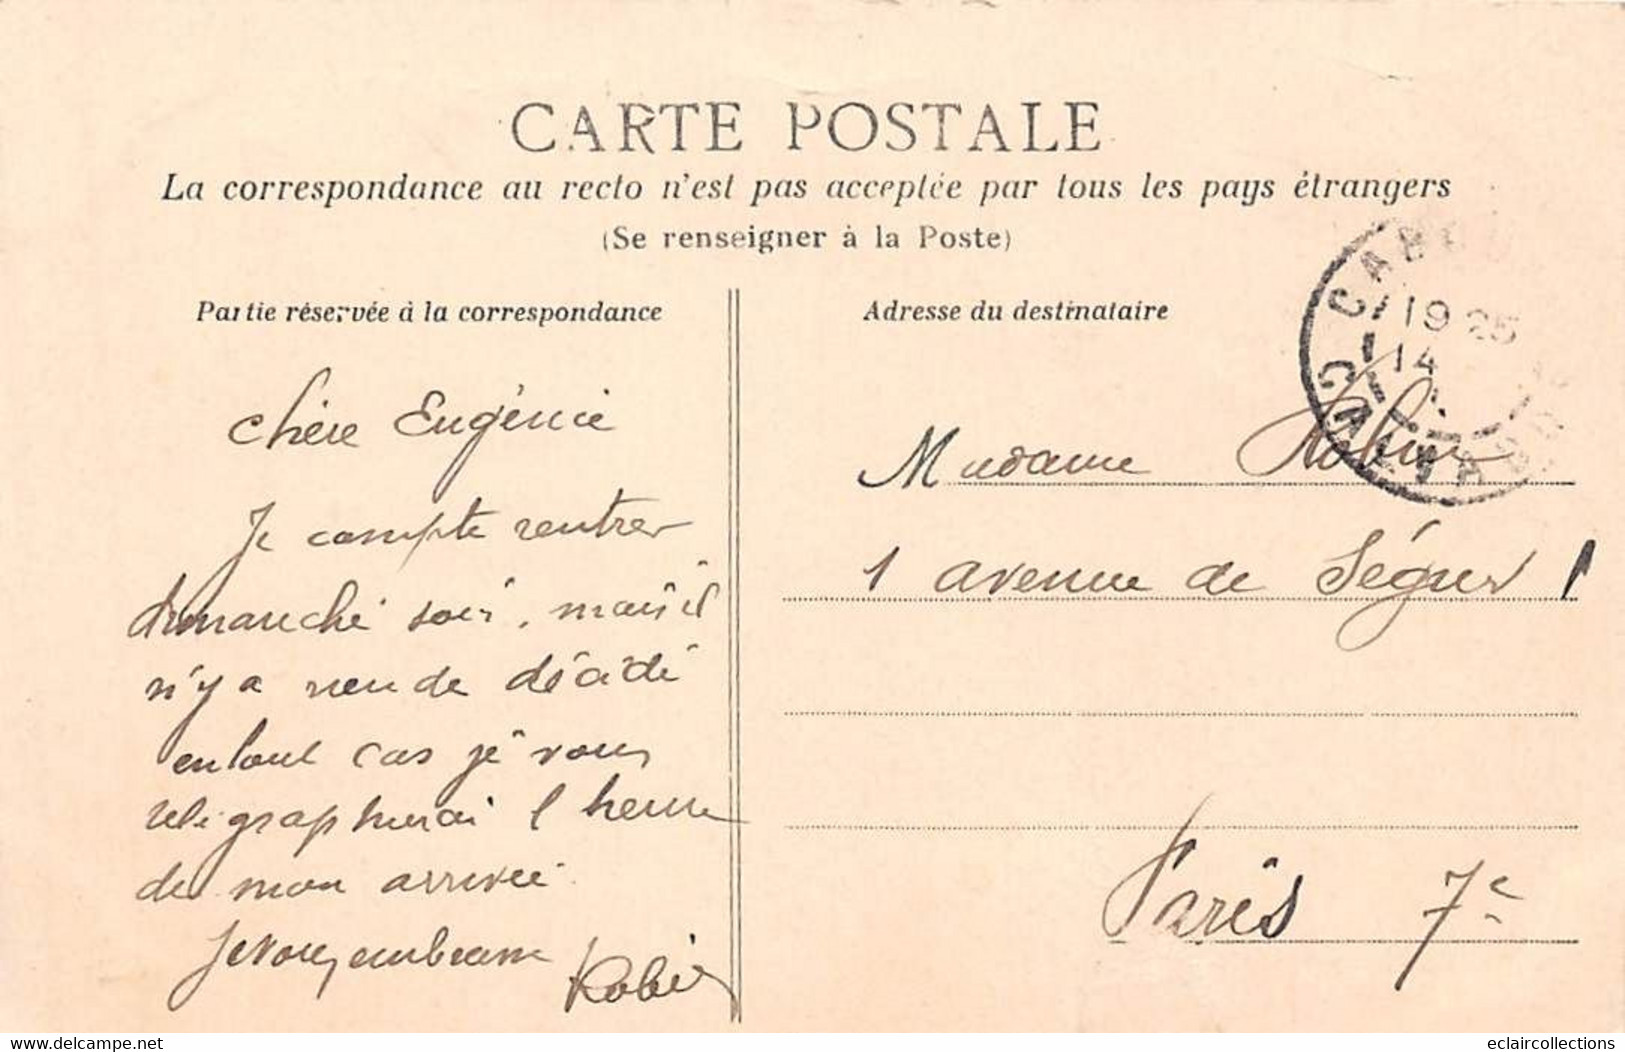 CARTE POSTALE
La correspondance au recto n'est pas acceptée par tous les pays étrangers
(Se renseigner à la Poste)
Partie réservée à la correspondance
Chère Eugénie
Je compte rentrer
dimanche soir, mais il
n'y a rien de décidé
en tout cas je vous
télégraphierai l heure
de mon arrivée
Je vous embrasse
Robin
Adresse du destinataire
19 25
14
CALVADOS
Madame Robin
1 avenue de Ségur 1
Paris 7e
Delcampe.net
eclaircollections